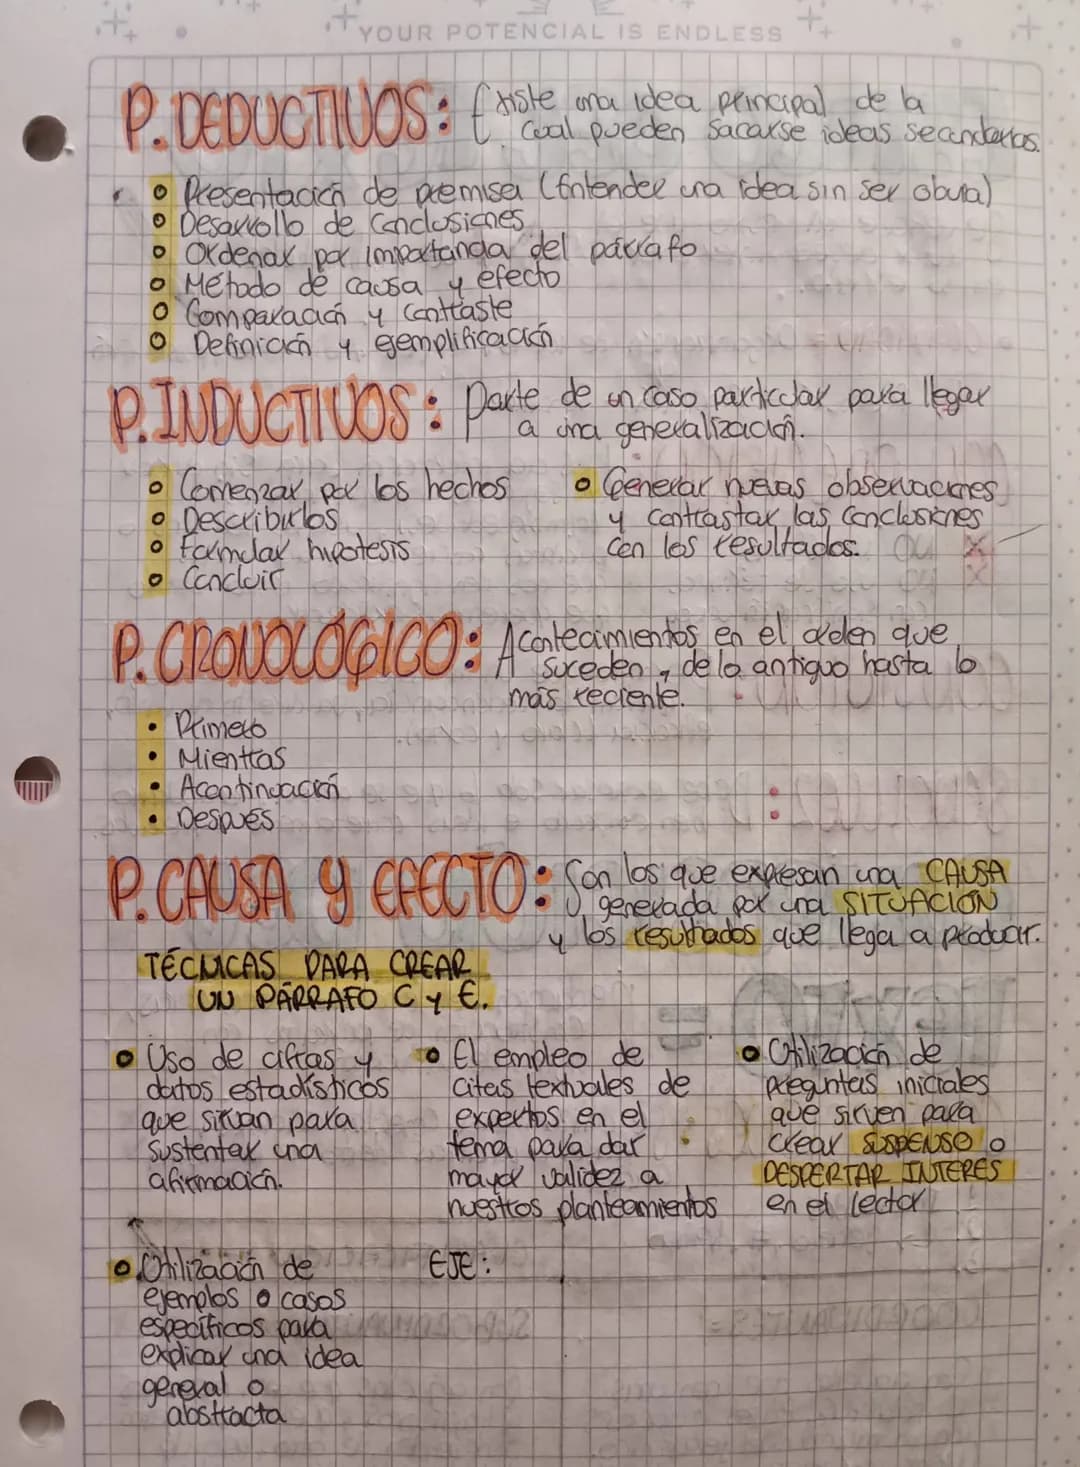 YOUR POTENCIAL IS ENDLESS
P. DEDUCTIVOS: Existe una idea principal de la
cual pueden sacarse ideas secundarias.
Presentación de premisa (Entender una idea sin ser obvia)
Desarrollo de conclusiones
Ordenar por importancia del párrafo
Método de causa y efecto
Comparación y contraste
Definición y ejemplificación
P. INDUCTIVOS: Parte de un caso particular para llegar
a una generalización.
Comenzar por los hechos
Describirlos
Formular hipotesis
Concluir
Generar nuevas observaciones
y contrastar las conclusiones
con los resultados.
P. CRONOLÓGICO: Acontecimientos en el orden que
suceden, de lo antiguo hasta lo
más reciente.
Primero
Mientras
Acontinuación
Después
P. CAUSA Y EFECTO: Son los que expresan una CAUSA
generada por una SITUACIÓN
y los resultados que llega a producir.
TÉCNICAS PARA CREAR
UN PÁRRAFO C Y E.
Uso de cifras y
datos estadísticos
que sirvan para
sustentar una
afirmación.
El empleo de
citas textuales de
expertos en el
tema para dar
mayor validez a
nuestros planteamientos
Utilización de
preguntas iniciales
que sirven para
crear SUSPENSO o
DESPERTAR INTERES
en el lector
Utilización de
ejemplos o casos
específicos para
explicar una idea
general o
abstracta
EJE: